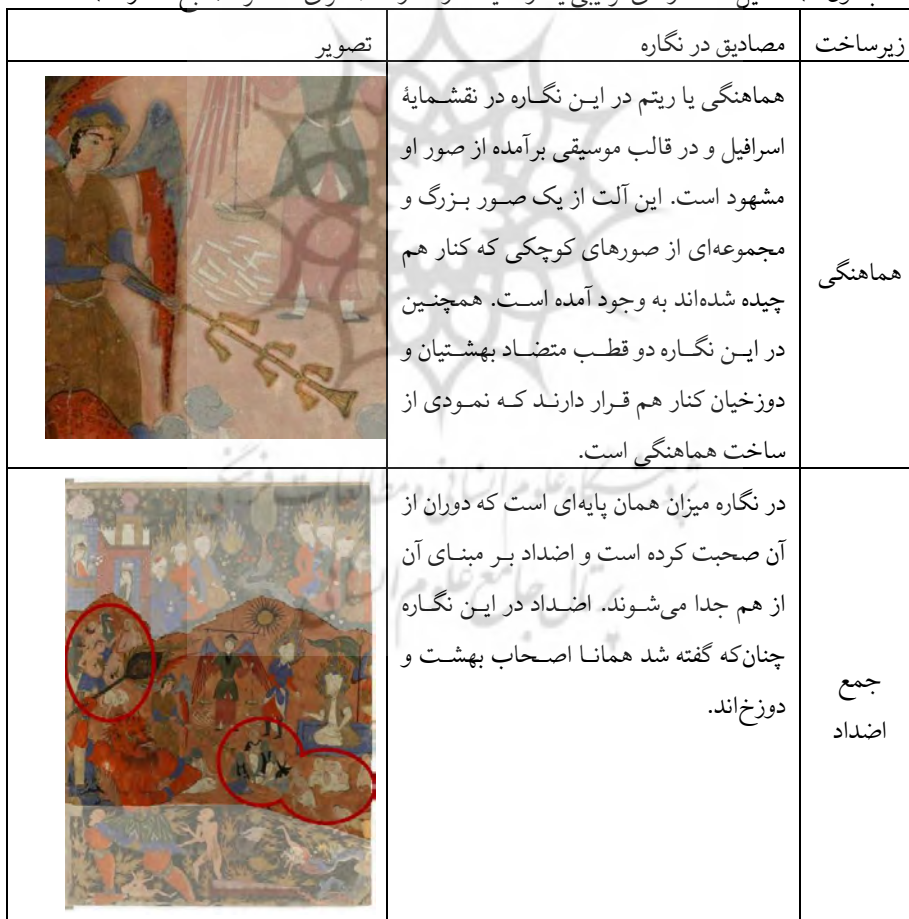 زیرساخت
مصادیق در نگاره
تصویر
هماهنگی
هماهنگی یا ریتم در ایـن نگـاره در نقشـمایۀ
اسرافیل و در قالب موسیقی برآمده از صور او
مشهود است. این آلت از یک صـور بـزرگ و
مجموعه‌ای از صورهای کوچکی که کنار هم
چیده شده‌اند به وجود آمده اسـت. همچنـین
در ایـن نگـاره دو قطـب متضـاد بهشـتیان و
دوزخیان کنار هم قـرار دارنـد کـه نمـودی از
ساخت هماهنگی است.
جمع
اضداد
در نگاره میزان همان پایه‌ای است که دوران از
آن صحبت کرده است و اضداد بـر مبنـای آن
از هم جدا می‌شـوند. اضـداد در ایـن نگـاره
چنان‌که گفته شد همانـا اصـحاب بهشـت و
دوزخ‌اند.
پژوهشگاه علوم انسانی و مطالعات فرهنگی
پرتال جامع علوم انسانی